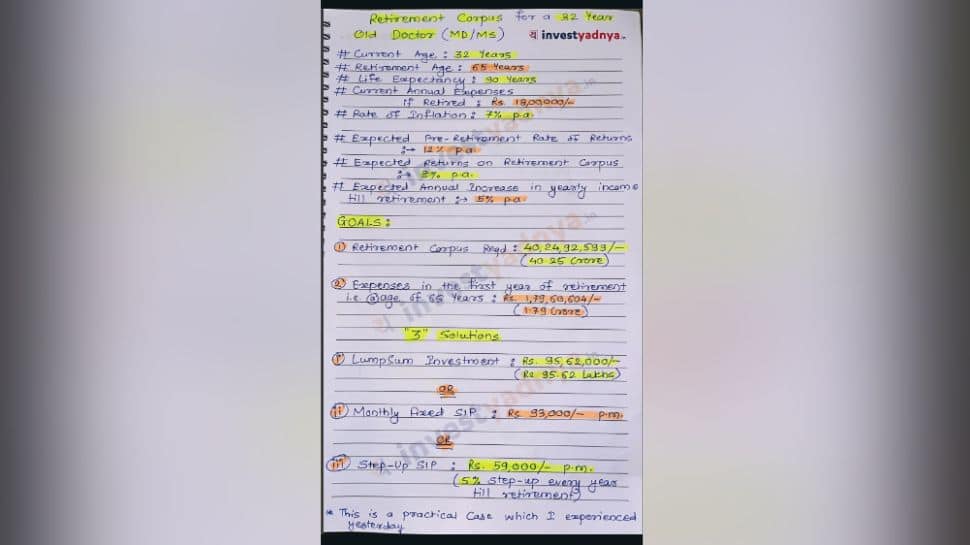 Retirement Corpus for a 32 Year
Old Doctor (MD/MS)
investyadnya.in
# Current Age : 32 Years
# Retirement Age : 65 Years
# Life Expectancy : 90 Years
# Current Annual Expenses
If Retired : Rs. 18,00,000/-
# Rate of Inflation : 7% p.a.
# Expected Pre-Retirement Rate of Returns
:→ 12% p.a.
# Expected Returns on Retirement Corpus
:→ 8% p.a.
# Expected Annual Increase in yearly income
till retirement :→ 5% p.a
GOALS :
① Retirement Corpus Reqd : 40,24,92,599/-
(40.25 Crore)
② Expenses in the first year of retirement
i.e @age of 65 Years : Rs. 1,78,60,604/-
(1.79 Crore)
"3" Solutions
i) LumpSum Investment : Rs. 95,62,000/-
(Rs 95.62 Lakhs)
OR
ii) Monthly Fixed SIP : Rs 93,000/- p.m.
OR
iii) Step-Up SIP : Rs. 59,000/- p.m.
(5% Step-up every year
till retirement)
* This is a practical Case which I experienced
yesterday
investyadnya.in
investyadnya.in
investyadnya.in